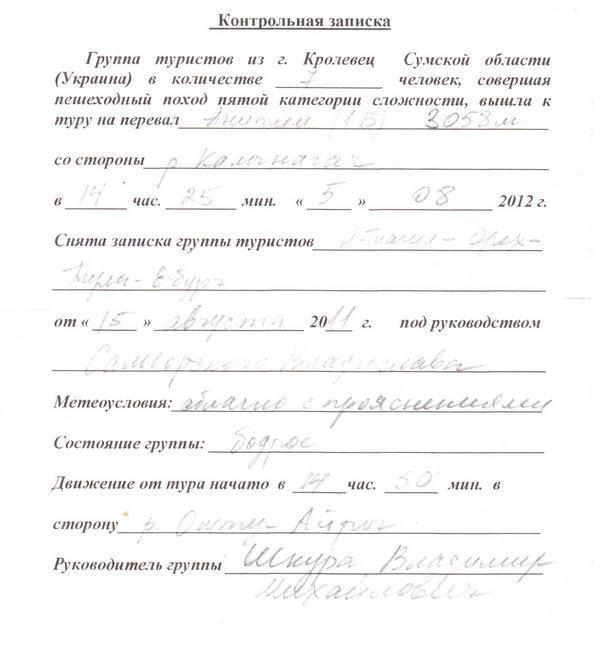 Контрольная записка
Группа туристов из г. Кролевец Сумской области
(Украина) в количестве 7 человек, совершая
пешеходный поход пятой категории сложности, вышла к
туру на перевал (1Б) 3058м
со стороны р
в 14 час. 25 мин. « 5 » 08 2012 г.
Снята записка группы туристов Н-Тагил-
Е-бург
от « 15 » августа 2011 г. под руководством
Владислава
Метеоусловия: облачно с прояснениями
Состояние группы: бодрое
Движение от тура начато в 14 час. 50 мин. в
сторону р.
Руководитель группы Шкура Владимир
Михайлович